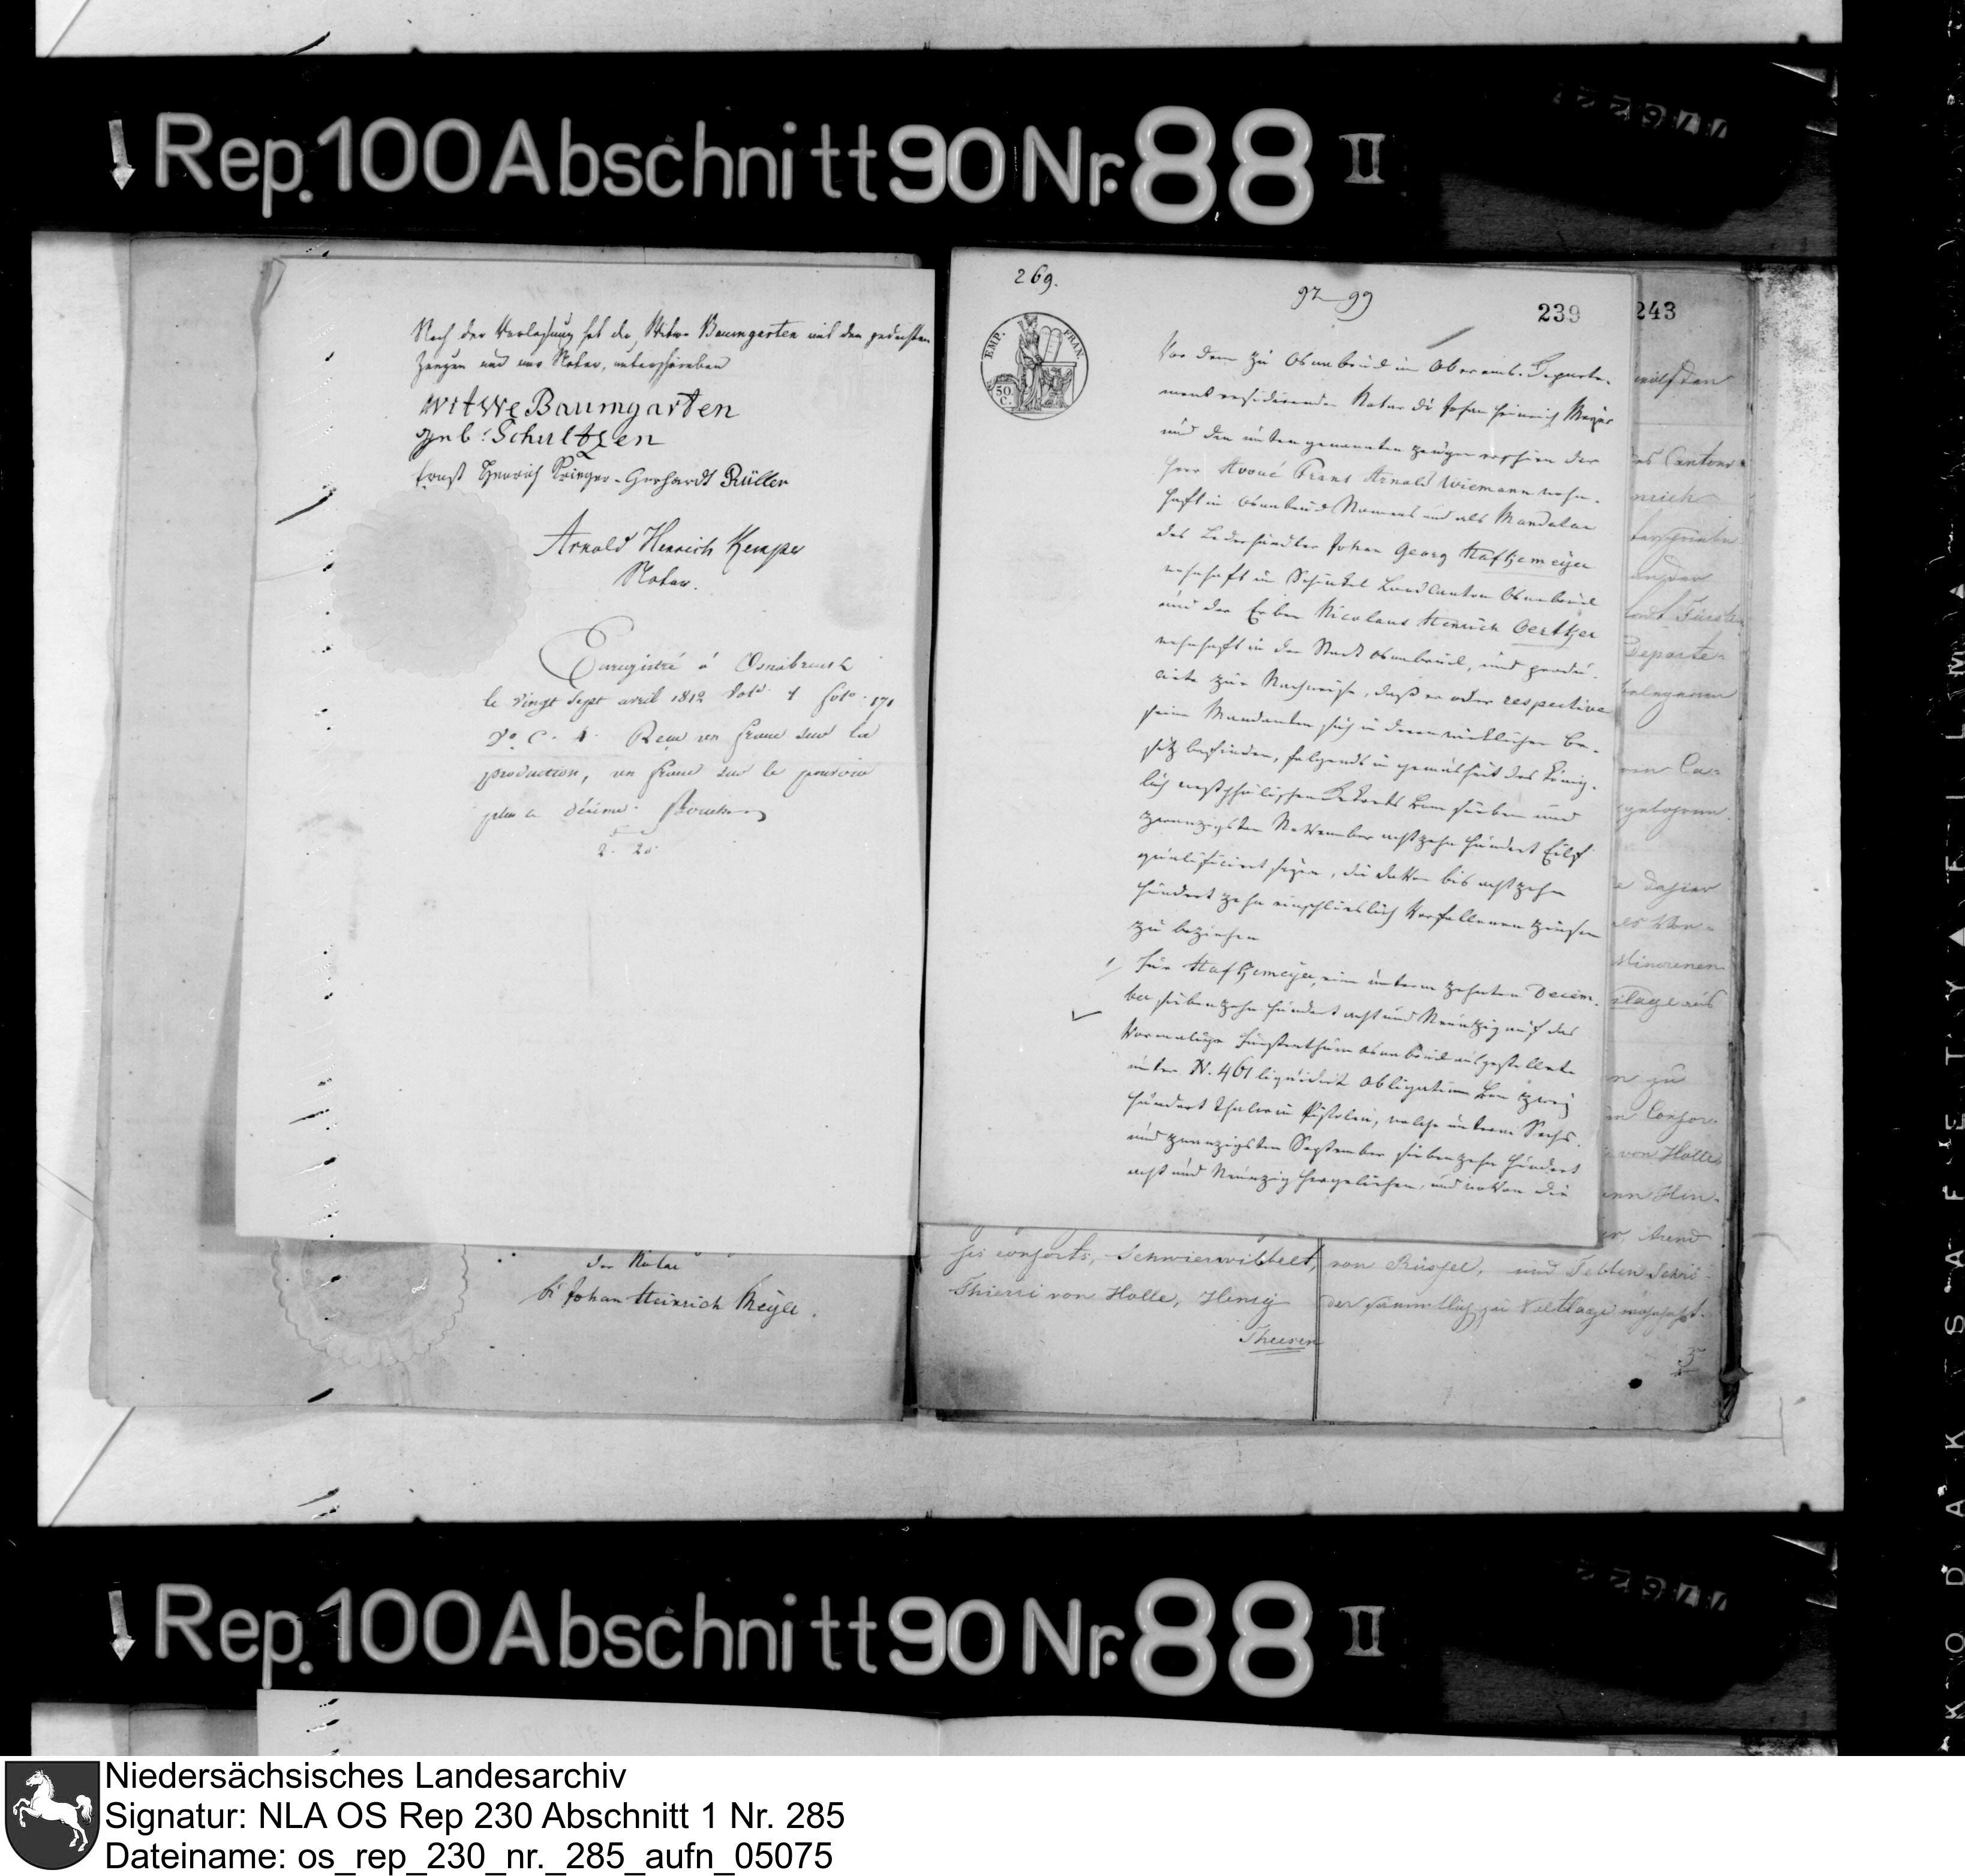 Rep. 100 Abschnitt 90 Nr. 88 II
Nach der Vorlesung hat die Witwe Baumgarten mit den gedachten
Zeugen und mir Notar, unterschrieben
Witwe Baumgarten
geb: Schultzen
Ernst Henrich Krieger - Gerhardt Rüller
Arnold Henrich Kemper
Notar.
Enregistré á Osnabruck
le vingt sept avril 1812 fol. 171
Vo. C. 1. Recu un franc sur la
production, un franc sur le pouvoir
plus le décime.
2. 20.
der Notar
Johan Heinrich Meyer.
269.
97 99
239
243
EMP. FRAN.
50. C.
Vor dem zu Osnabrück im Oberems-Departe-
ment residirenden Notar Johan Heinrich Meyer
und den unten genannten Zeugen erschien der
Herr Avoué Frans Arnold Wiemann wohn-
haft in Osnabrück Namens und als Mandatar
des Lederhändler Johan Georg Hafkemeyer
wohnhaft in Schinkel Landcanton Osnabrück
und der Erben Nicolaus Henrich Oertker
wohnhaft in der Stadt Osnabrück, und produ-
cirte zur Nachweise, daß er oder respective
seine Mandanten sich in deren wirklichen Be-
sitz befinden, folgends in gemäsheit des König-
lich westphälischen Dekrets vom sieben und
zwanzigsten November achtzehn hundert Eilf
qualificirt seyen, die davon bis achtzehn
hundert zehn einschlieslich verfallenen Zinsen
zu beziehen
1, Für Hafkemeyer, eine unterm zehnten Decem-
ber siebenzehn hundert acht und Neunzig auf das
vormalige Fürstenthum Osnabrück ausgestellte
unter N. 461 liquidirt Obligation von zwey
hundert Thaler in Pistolen, welche unterm Sechs
und zwanzigsten September siebenzehn hundert
acht und Neunzig hergeliehen, und wovon die
des Cantons
nrich
Fürsten
Departe-
belegenen
Ca-
gebohren
Minorenen
n zu
Consor-
von Holle
ann Hin-
Arend
ses consorts, Schwierwibbelt,
Thierri von Holle, Henry
Theeren
von Rüssel, und
wohnhaft.
Rep. 100 Abschnitt 90 Nr. 88 II
KODAK SAFETY FILM
Niedersächsisches Landesarchiv
Signatur: NLA OS Rep 230 Abschnitt 1 Nr. 285
Dateiname: os_rep_230_nr._285_aufn_05075